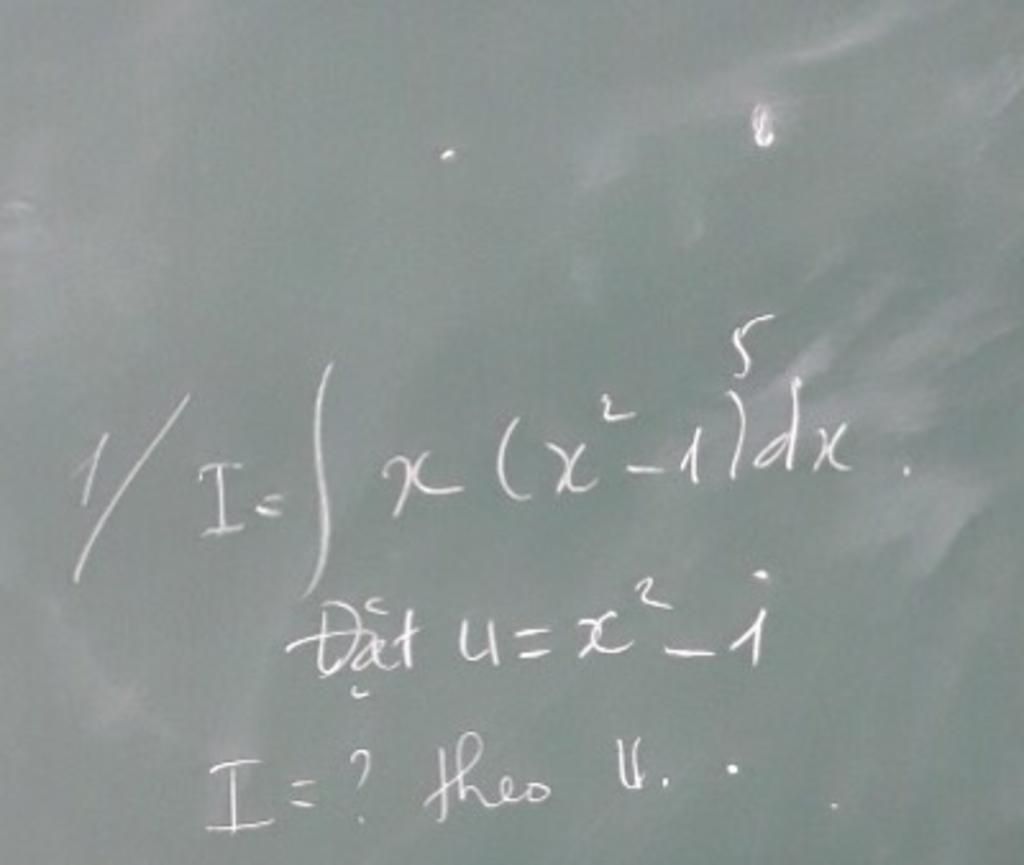 1/ I = ∫ x (x² - 1)⁵ dx .
Đặt u = x² - 1
I = ? theo u .